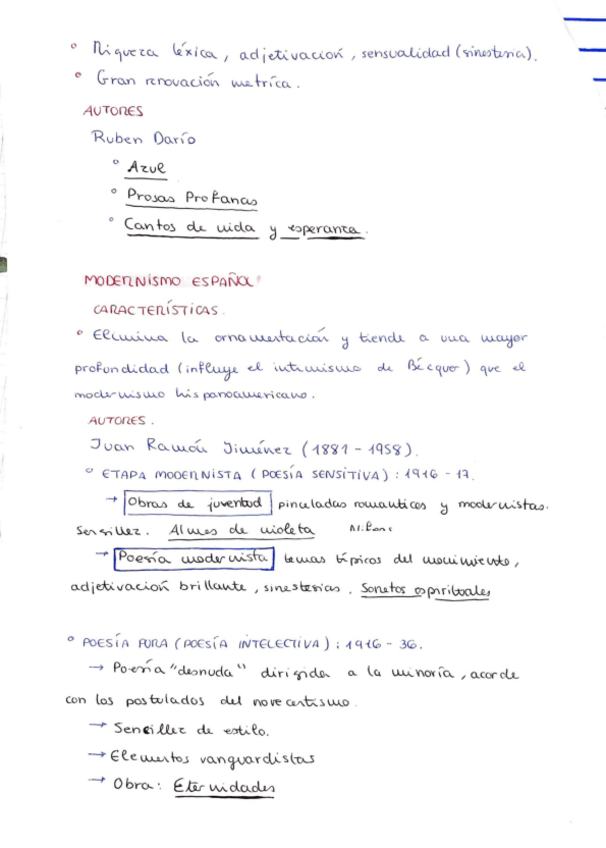 ° Riqueza léxica, adjetivación, sensualidad (sinestesia).
° Gran renovación metrica.
AUTORES
Ruben Darío
° Azul
° Prosas Profanas
° Cantos de vida y esperanza.
MODERNISMO ESPAÑOL
CARACTERÍSTICAS.
° Elimina la ornamentación y tiende a una mayor
profundidad (influye el intimismo de Bécquer) que el
modernismo hispanoamericano.
AUTORES.
Juan Ramón Jiménez (1881 - 1958).
° ETAPA MODERNISTA (POESÍA SENSITIVA): 1916 - 17.
→ Obras de juventud pinceladas romanticas y modernistas.
Sencillez. Almas de violeta
→ Poesía modernista temas típicos del movimiento,
adjetivación brillante, sinestesias. Sonetos espirituales
° POESÍA PURA (POESÍA INTELECTIVA): 1916 - 36.
→ Poesía "desnuda" dirigida a la minoría, acorde
con los postulados del novecentismo.
→ Sencillez de estilo.
→ Elementos vanguardistas
→ Obra: Eternidades